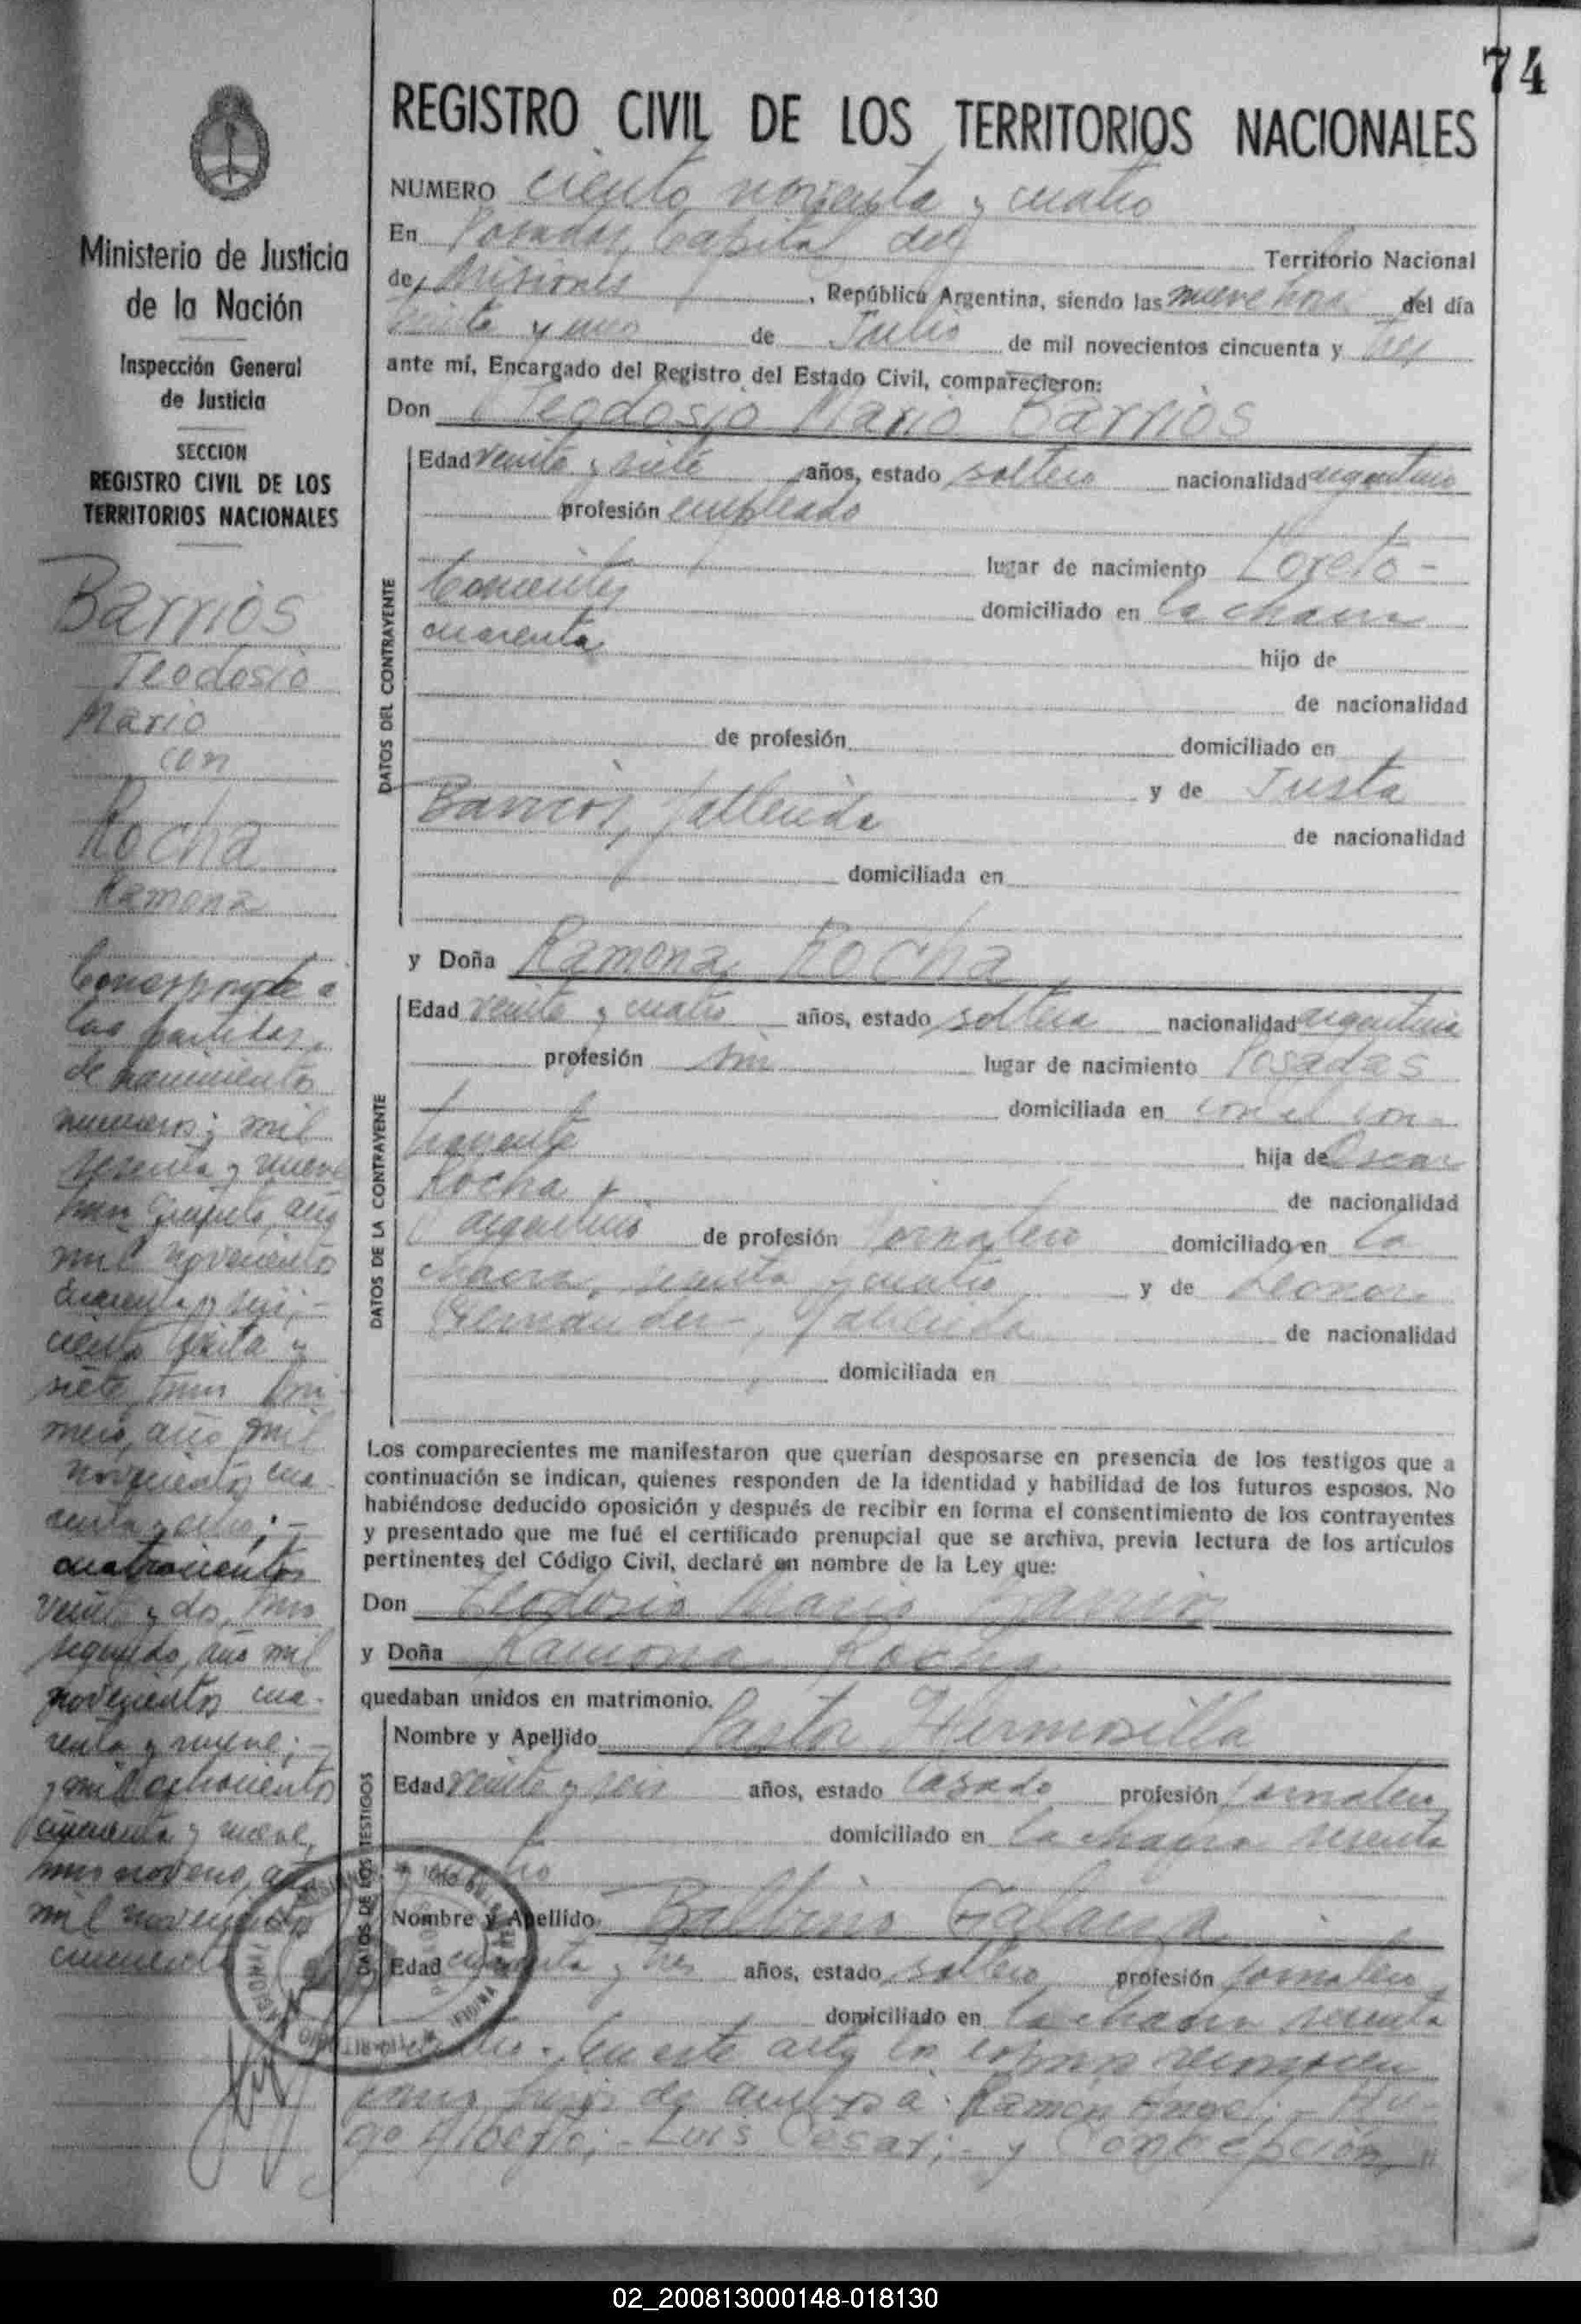 74
REGISTRO CIVIL DE LOS TERRITORIOS NACIONALES
NUMERO ciento noventa y cuatro
En Posadas, Capital del Territorio Nacional
de Misiones, República Argentina, siendo las nueve horas del día
treinta y uno de Julio de mil novecientos cincuenta y tres
ante mí, Encargado del Registro del Estado Civil, comparecieron:
Don Teodosio Mario Barrios
DATOS DEL CONTRAYENTE
Edad veinte y siete años, estado soltero nacionalidad argentino
profesión empleado
lugar de nacimiento Loreto -
Corrientes domiciliado en la chacra
cuarenta hijo de
de nacionalidad
de profesión domiciliado en
y de Justa
Barrios, fallecida de nacionalidad
domiciliada en
y Doña Ramona Rocha
DATOS DE LA CONTRAYENTE
Edad veinte y cuatro años, estado soltera nacionalidad argentina
profesión sin lugar de nacimiento Posadas
domiciliada en con el con-
trayente hija de Oscar
Rocha de nacionalidad
argentino de profesión jornalero domiciliado en la
chacra sesenta y cuatro y de Leonor
Fernandez, fallecida de nacionalidad
domiciliada en
Los comparecientes me manifestaron que querían desposarse en presencia de los testigos que a
continuación se indican, quienes responden de la identidad y habilidad de los futuros esposos. No
habiéndose deducido oposición y después de recibir en forma el consentimiento de los contrayentes
y presentado que me fué el certificado prenupcial que se archiva, previa lectura de los artículos
pertinentes del Código Civil, declaré en nombre de la Ley que:
Don Teodosio Mario Barrios
y Doña Ramona Rocha
quedaban unidos en matrimonio.
DATOS DE LOS TESTIGOS
Nombre y Apellido Pastor Hermosilla
Edad veinte y seis años, estado casado profesión jornalero
domiciliado en la chacra sesenta
Nombre y Apellido Balbino Galarza
Edad y tres años, estado soltero profesión jornalero
domiciliado en la chacra sesenta
En este acto los esposos reconocen
como hijos de ambos a: Ramón Angel; - Hu-
go Alberto; - Luis Cesar; - y Concepción
Ministerio de Justicia
de la Nación
Inspección General
de Justicia
SECCION
REGISTRO CIVIL DE LOS
TERRITORIOS NACIONALES
Barrios
Teodosio
Mario
con
Rocha
Ramona
Corresponde a
las partidas
de nacimiento
numeros: mil
sesenta y nueve
tomo quinto, año
mil novecientos
cuarenta y seis; -
ciento treinta y
siete, tomo pri-
mero, año mil
novecientos cua-
renta y ocho; -
cuatrocientos
veinte y dos, tomo
segundo, año mil
novecientos cua-
renta y nueve; -
y mil ochocientos
cincuenta y nueve,
tomo noveno, año
mil novecientos
cincuenta
02_200813000148-018130